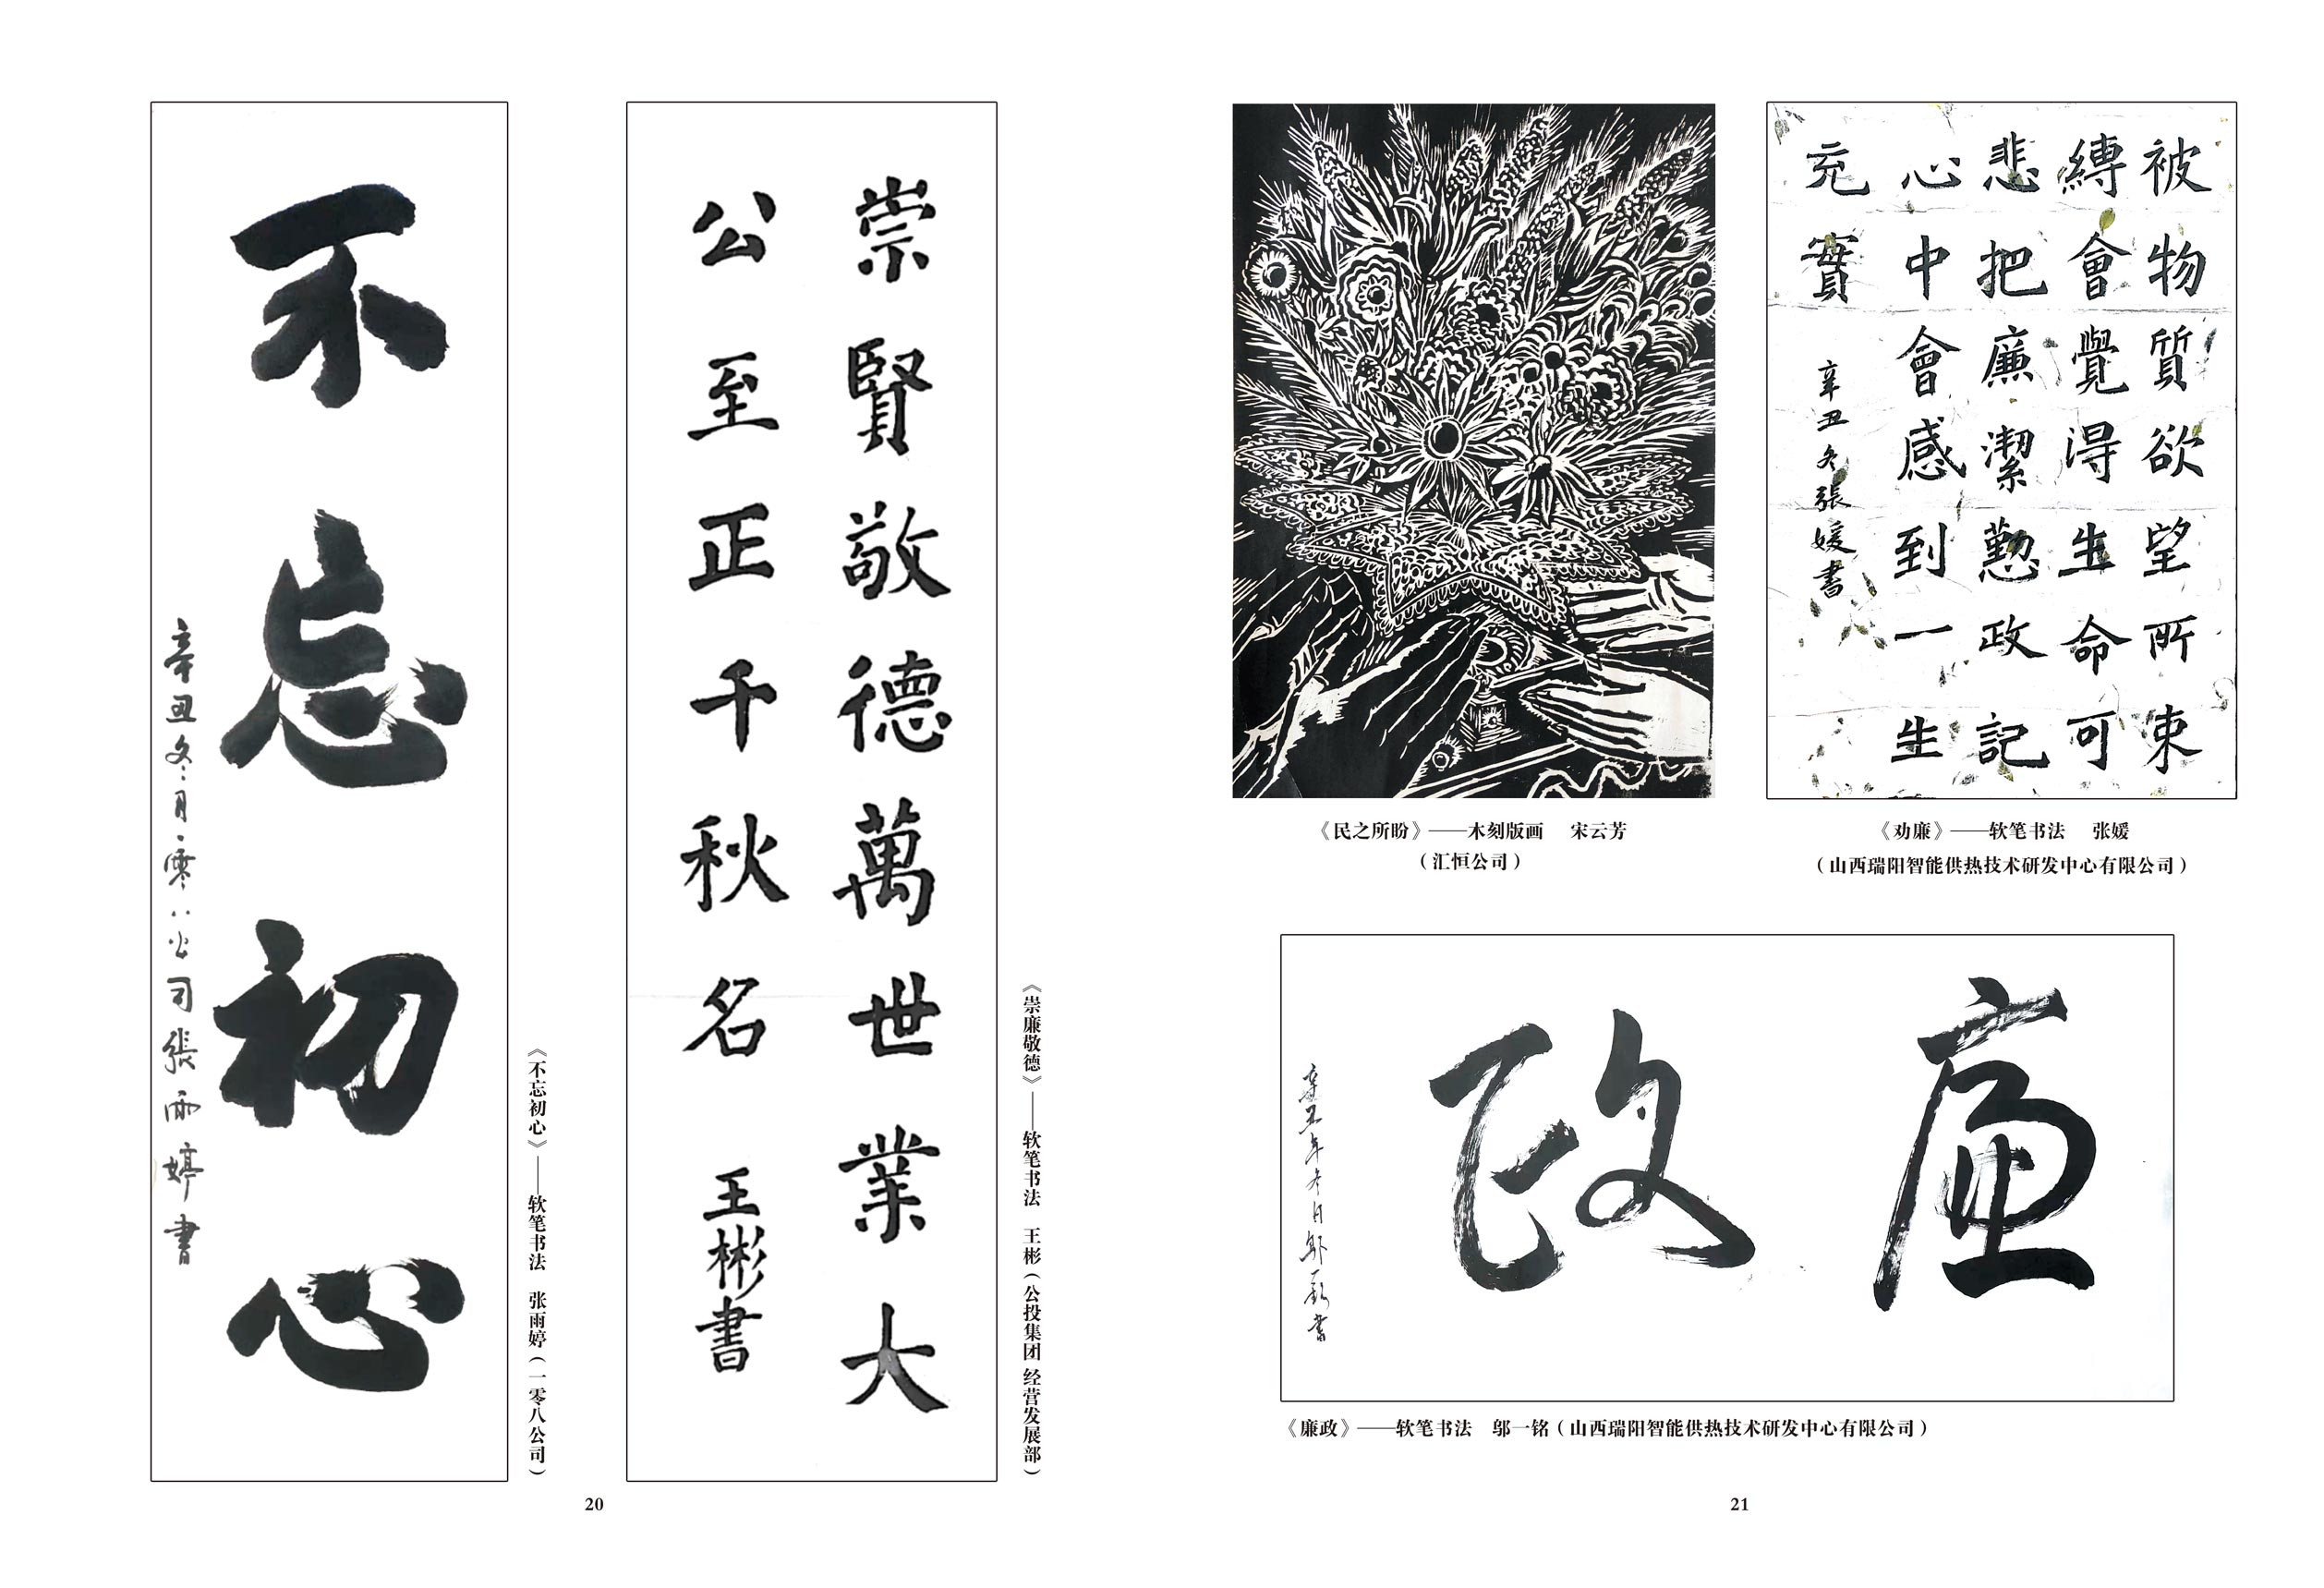 不忘初心
辛丑冬月一零八公司張雨婷書
《不忘初心》——软笔书法 张雨婷(一零八公司)
崇賢敬德萬世業大
公至正千秋名 王彬書
《崇廉敬德》——软笔书法 王彬(公投集团 经营发展部)
20
《民之所盼》——木刻版画 宋云芳
(汇恒公司)
被物質欲望所束
縛會覺得生命可
悲把廉潔勤政記
心中會感到一生
充實 辛丑冬張媛書
《劝廉》——软笔书法 张媛
(山西瑞阳智能供热技术研发中心有限公司)
廉政
辛丑年冬月邬一铭書
《廉政》——软笔书法 邬一铭(山西瑞阳智能供热技术研发中心有限公司)
21